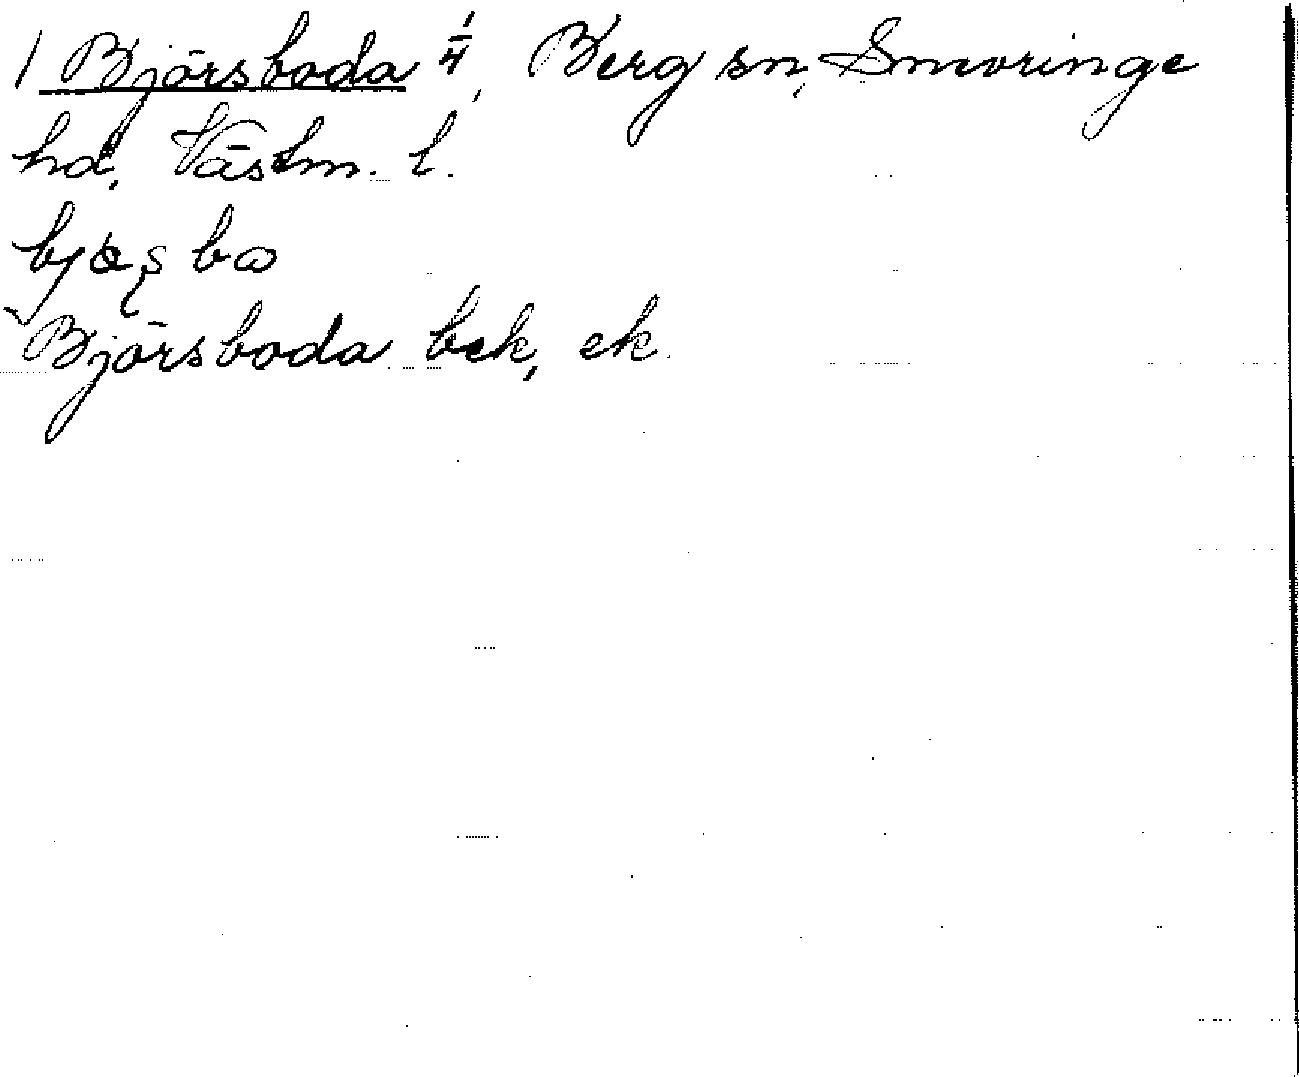 1 Björsboda 1/4, Berg sn, Snevringe
hd, Västm. l.
Björsboda bek, ek.